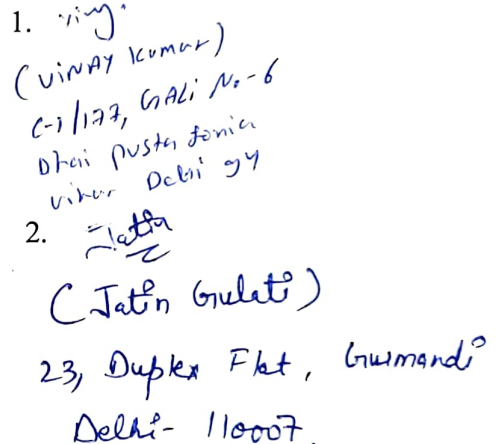 1.
(VINAY Kumar)
C-1/177, GALi No-6
Dhai pusta Sonia
vihar Delhi 94
2. Jatin
(Jatin Gulati)
23, Duplex Flat, Gurmandi
Delhi- 110007.